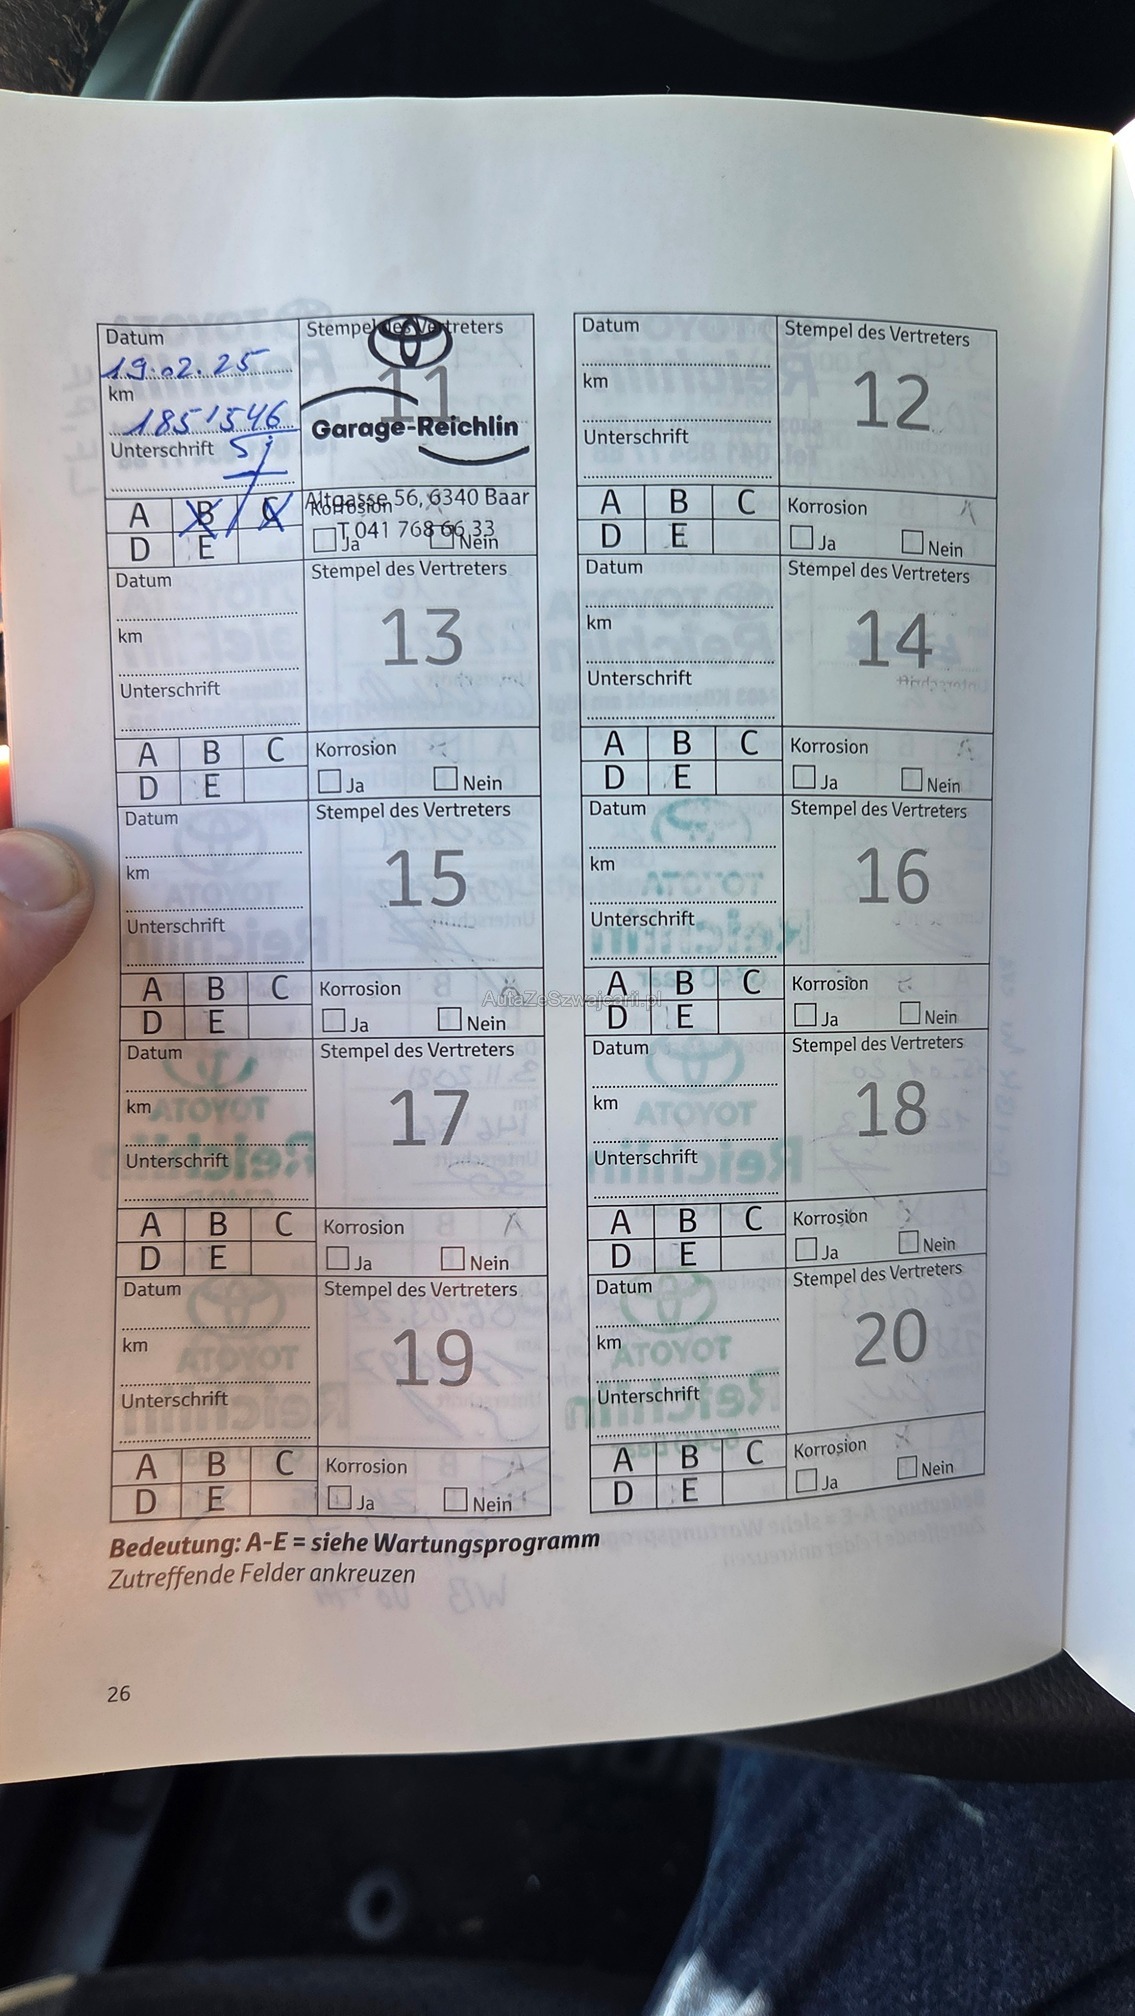 Datum
19.02.25
km
185'546
Unterschrift
Stempel des Vertreters
11
Garage-Reichlin
Altgasse 56, 6340 Baar
T 041 768 66 33
A B C
D E
Korrosion
Ja Nein
Datum
km
Unterschrift
Stempel des Vertreters
12
A B C
D E
Korrosion
Ja Nein
Datum
km
Unterschrift
Stempel des Vertreters
13
A B C
D E
Korrosion
Ja Nein
Datum
km
Unterschrift
Stempel des Vertreters
14
A B C
D E
Korrosion
Ja Nein
Datum
km
Unterschrift
Stempel des Vertreters
15
A B C
D E
Korrosion
Ja Nein
Datum
km
Unterschrift
Stempel des Vertreters
16
A B C
D E
Korrosion
Ja Nein
AutaZeSzwajcarii.pl
Datum
km
Unterschrift
Stempel des Vertreters
17
A B C
D E
Korrosion
Ja Nein
Datum
km
Unterschrift
Stempel des Vertreters
18
A B C
D E
Korrosion
Ja Nein
Datum
km
Unterschrift
Stempel des Vertreters
19
A B C
D E
Korrosion
Ja Nein
Datum
km
Unterschrift
Stempel des Vertreters
20
A B C
D E
Korrosion
Ja Nein
Bedeutung: A-E = siehe Wartungsprogramm
Zutreffende Felder ankreuzen
26